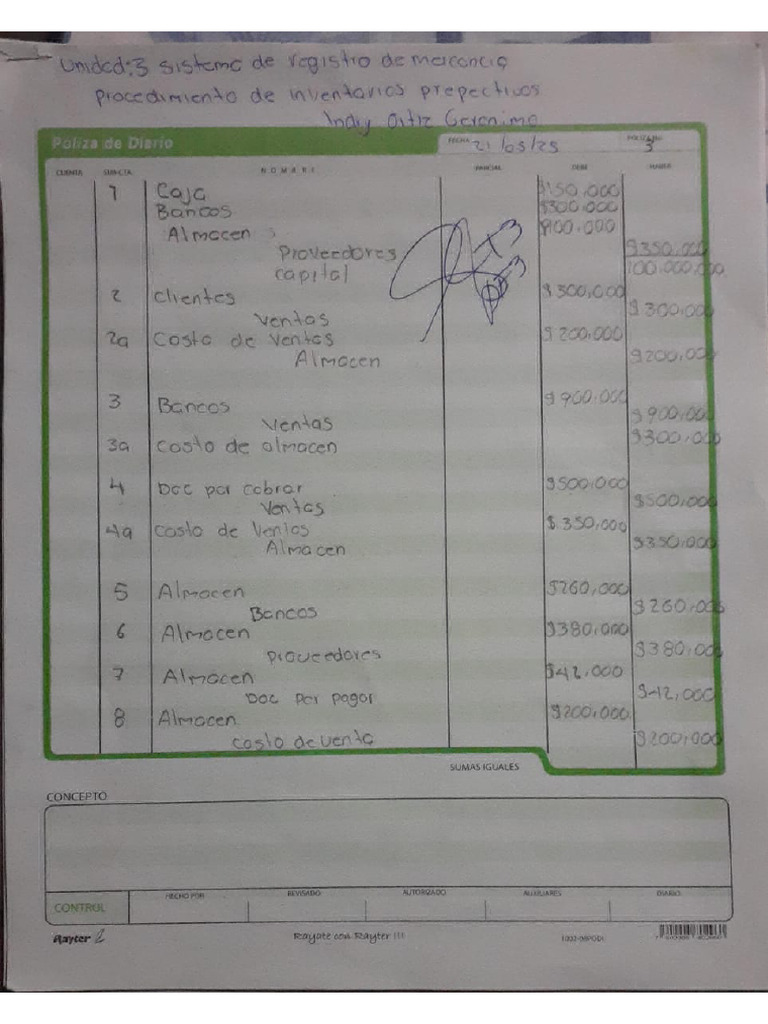 Unidad:3 sistema de registro de mercancia
procedimiento de inventarios prepectivos
Indiy Ortiz Geronimo
Poliza de Diario FECHA 21/05/25 3
CUENTA SUB-CTA. NOMBRE PARCIAL DEBE HABER
1 Caja $150,000
Bancos $300,000
Almacen $100,000
Proveedores $350,000
capital 100,000,000
2 Clientes $300,000
Ventas $300,000
2a Costo de Ventas $200,000
Almacen $200,000
3 Bancos $900,000
Ventas $900,000
3a Costo de almacen $300,000
4 Doc por cobrar $500,000
Ventas $500,000
4a Costo de Ventas $350,000
Almacen $350,000
5 Almacen $260,000
Bancos $260,000
6 Almacen $380,000
Proveedores $380,000
7 Almacen $42,000
Doc por pagar $42,000
8 Almacen $200,000
costo de venta $200,000
SUMAS IGUALES
CONCEPTO
CONTROL HECHO POR REVISADO AUTORIZADO AUXILIARES DIARIO
Rayter 2 Rayate con Rayter !!!